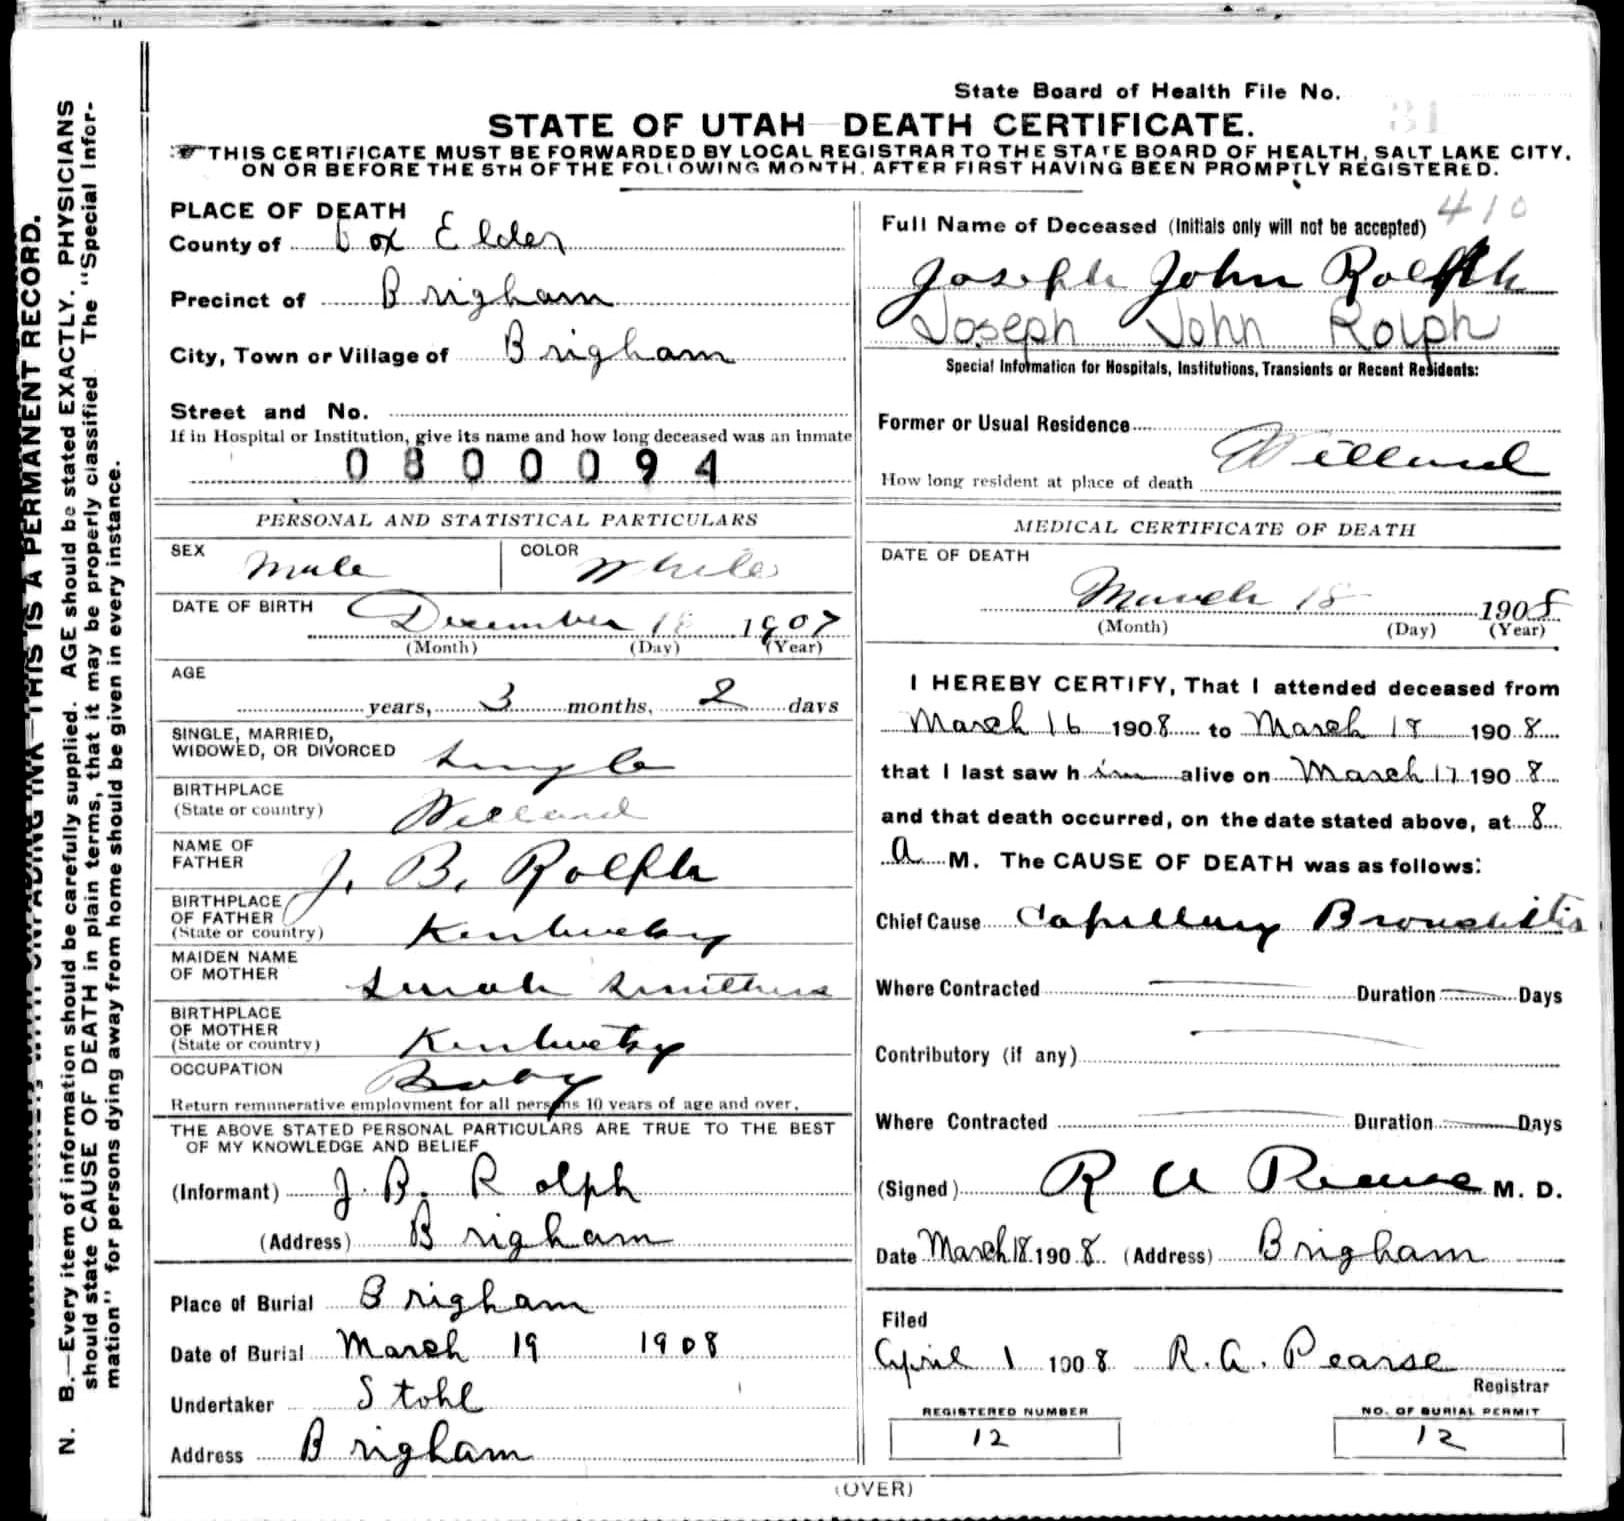 State Board of Health File No. 31
STATE OF UTAH DEATH CERTIFICATE.
THIS CERTIFICATE MUST BE FORWARDED BY LOCAL REGISTRAR TO THE STATE BOARD OF HEALTH, SALT LAKE CITY,
ON OR BEFORE THE 5TH OF THE FOLLOWING MONTH, AFTER FIRST HAVING BEEN PROMPTLY REGISTERED.
PLACE OF DEATH
County of Box Elder
Precinct of Brigham
City, Town or Village of Brigham
Street and No.
If in Hospital or Institution, give its name and how long deceased was an inmate
0800094
PERSONAL AND STATISTICAL PARTICULARS
SEX Male COLOR White
DATE OF BIRTH December 18 1907
(Month) (Day) (Year)
AGE
years, 3 months, 2 days
SINGLE, MARRIED,
WIDOWED, OR DIVORCED Single
BIRTHPLACE
(State or country) Willard
NAME OF
FATHER J. B. Rolph
BIRTHPLACE
OF FATHER
(State or country) Kentucky
MAIDEN NAME
OF MOTHER Sarah Smithers
BIRTHPLACE
OF MOTHER
(State or country) Kentucky
OCCUPATION Baby
Return remunerative employment for all persons 10 years of age and over.
THE ABOVE STATED PERSONAL PARTICULARS ARE TRUE TO THE BEST
OF MY KNOWLEDGE AND BELIEF
(Informant) J. B. Rolph
(Address) Brigham
Place of Burial Brigham
Date of Burial March 19 1908
Undertaker Stohl
Address Brigham
410
Full Name of Deceased (Initials only will not be accepted)
Joseph John Rolph
Joseph John Rolph
Special Information for Hospitals, Institutions, Transients or Recent Residents:
Former or Usual Residence
Willard
How long resident at place of death
MEDICAL CERTIFICATE OF DEATH
DATE OF DEATH
March 18 1908
(Month) (Day) (Year)
I HEREBY CERTIFY, That I attended deceased from
March 16 1908 to March 18 1908
that I last saw him alive on March 17 1908
and that death occurred, on the date stated above, at 8
A M. The CAUSE OF DEATH was as follows:
Chief Cause Capillary Bronchitis
Where Contracted Duration Days
Contributory (if any)
Where Contracted Duration Days
(Signed) R A Pearse M. D.
Date March 18 1908 (Address) Brigham
Filed
April 1 1908 R. A. Pearse
Registrar
REGISTERED NUMBER
12
NO. OF BURIAL PERMIT
12
(OVER)
THIS IS A PERMANENT RECORD.
N. B.—Every item of information should be carefully supplied. AGE should be stated EXACTLY. PHYSICIANS
should state CAUSE OF DEATH in plain terms, that it may be properly classified The "Special Infor-
mation" for persons dying away from home should be given in every instance.